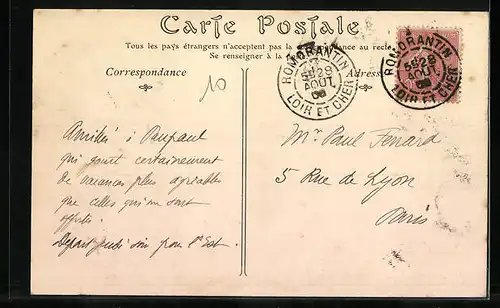 Carte Postale
Tous les pays étrangers n'acceptent pas la correspondance au recto
Se renseigner à la
Correspondance
Adresse
ROMORANTIN
29
AOUT
LOIR ET CHER
ROMORANTIN
29
AOUT
LOIR ET CHER
10
Amitiés à
qui jouit certainement
de vacances plus agréables
que celles qui me sont
offertes.
Départ jeudi soir pour l'Est.
Mr Paul
5 Rue de Lyon
Paris